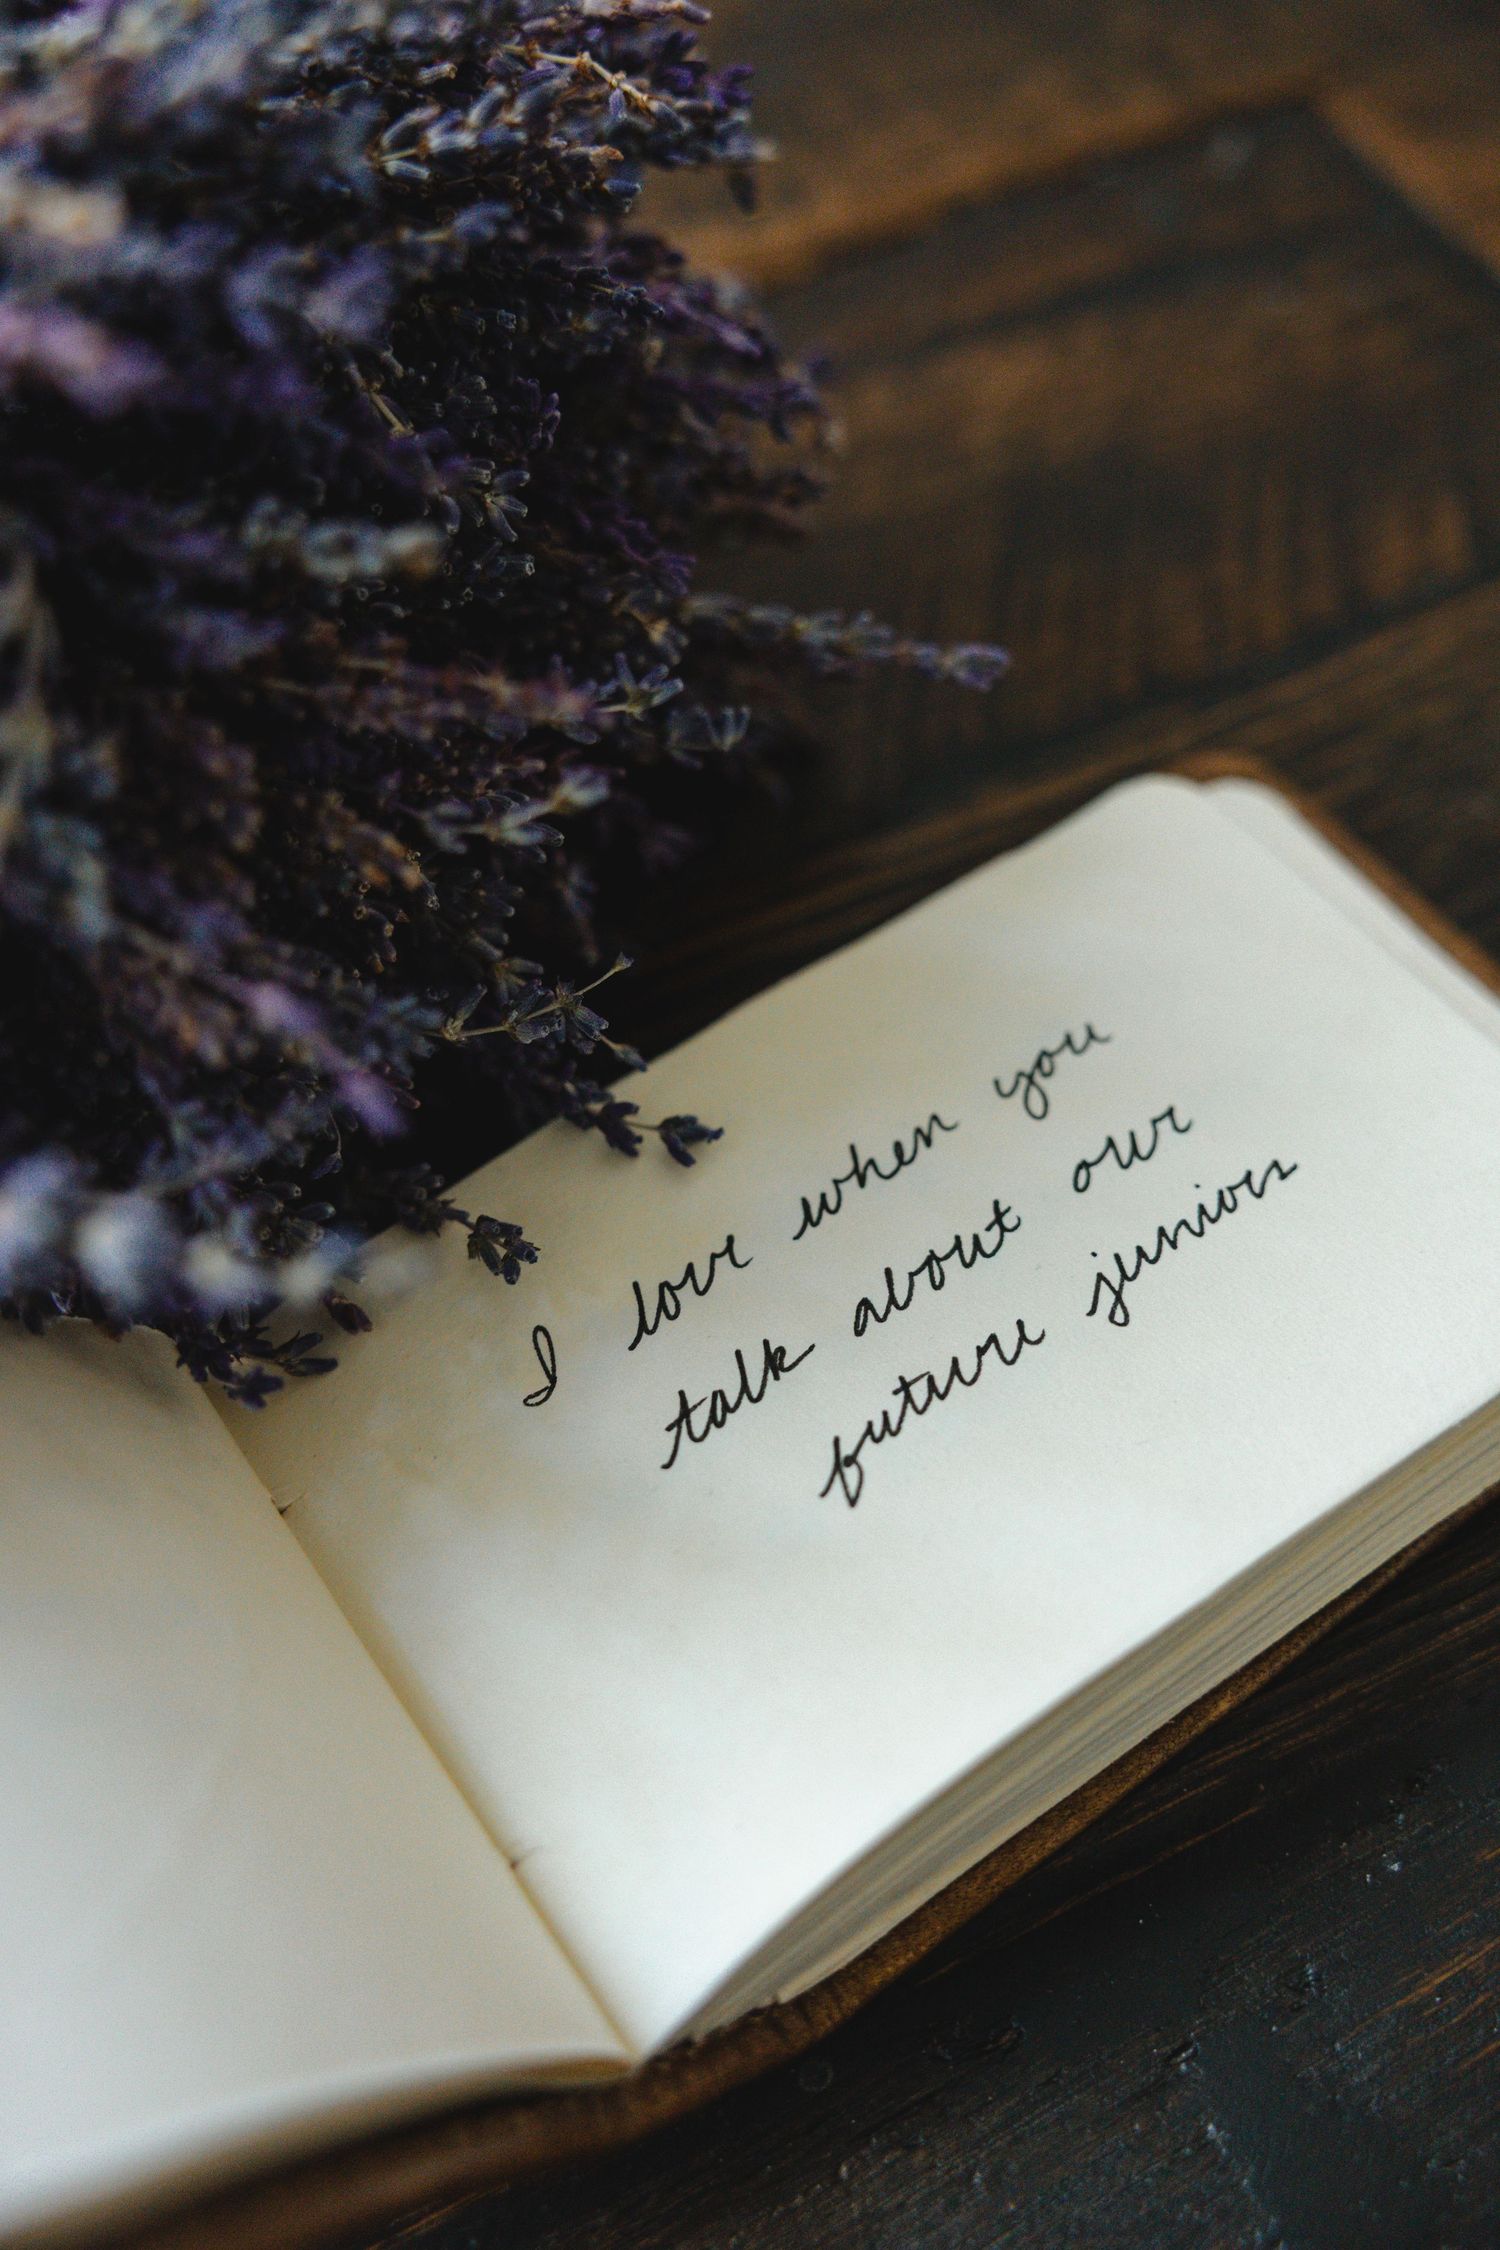 I love when you
talk about our
future juniors